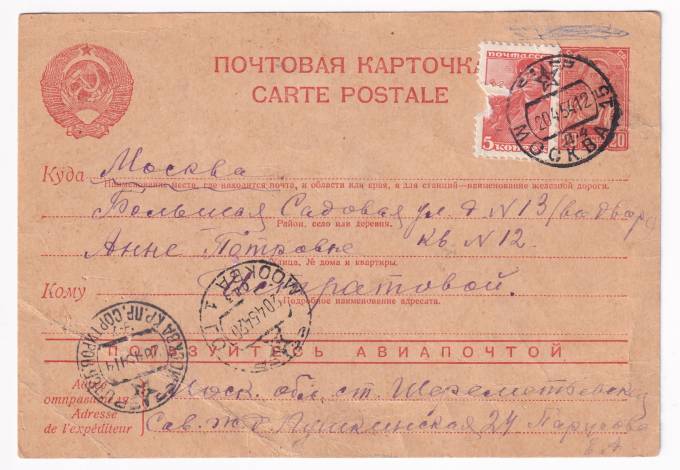 ПОЧТОВАЯ КАРТОЧКА
CARTE POSTALE
ПОЧТА СССР
5 КОПЕЕК
20
МОСКВА 25
20454.12
Куда Москва
Наименование места, где находится почта, и области или края, а для станций—наименование железной дороги.
Большая Садовая ул. д N 13 (во дворе
Район, село или деревня.
Анне Петровне кв N 12.
Улица, № дома и квартиры.
Кому
Подробное наименование адресата.
МОСКВА
20454.20
АВИАПОЧТОЙ
Адрес отправителя
Adresse de l'expéditeur
Моск. обл. ст. Шереметьевская
Сав. ж д. Пушкинская 24